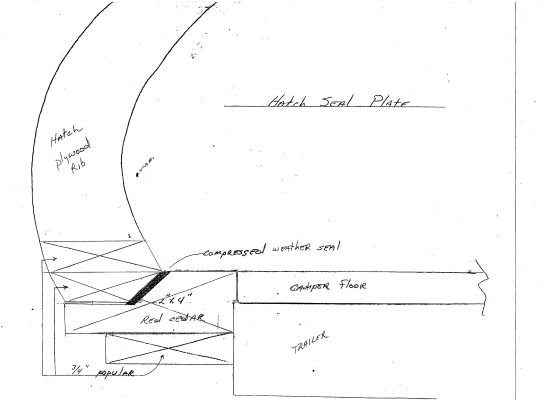 Hatch Seal Plate
Hatch
plywood
Rib
compressed weather seal
camper floor
2"x4"
Red cedar
TRAILER
3/4" popular